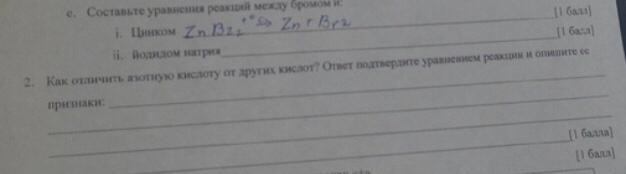 c. Составьте уравнения реакций между бромом и:
[1 балл]
i. Цинком ZnBr₂ t° → Zn + Br₂
[1 балл]
ii. йодидом натрия
2. Как отличить азотную кислоту от других кислот? Ответ подтвердите уравнением реакции и опишите ее
признаки:
[1 балла]
[1 балл]